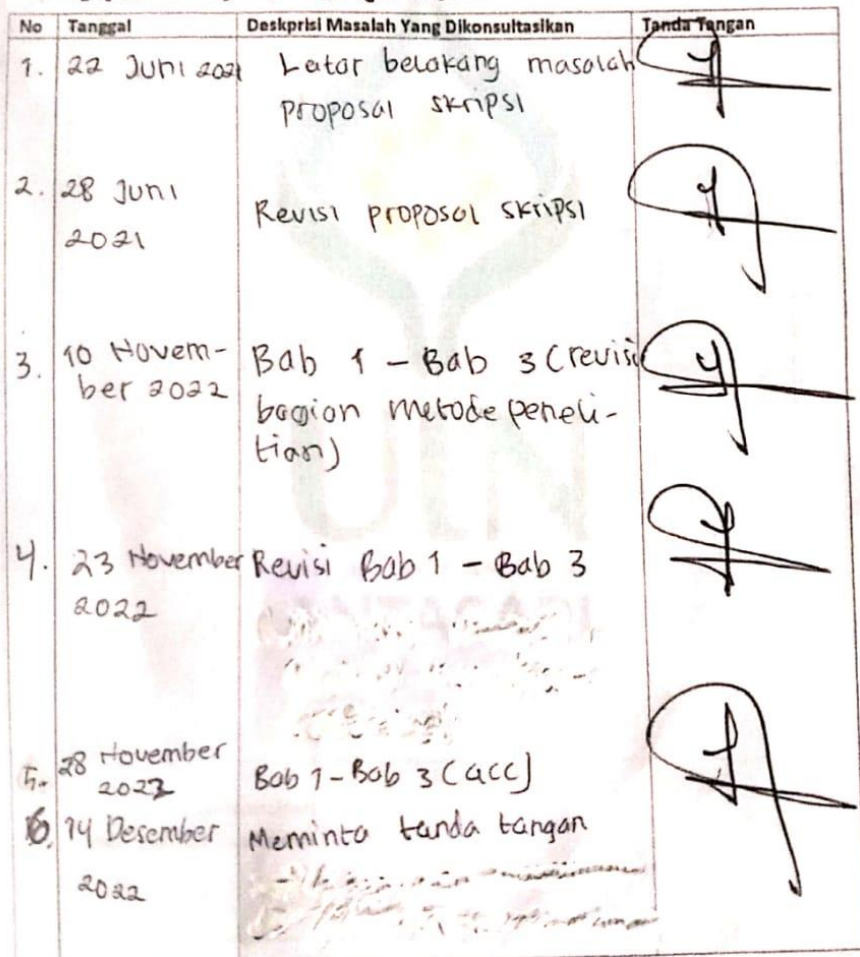 No Tanggal Deskprisi Masalah Yang Dikonsultasikan Tanda Tangan
1. 22 Juni 2021 Latar belakang masalah
proposal skripsi
2. 28 Juni
2021
Revisi proposal skripsi
3. 10 Novem- Bab 1 - Bab 3 (revisi
ber 2022 bagian metode peneli-
tian)
4. 23 November Revisi Bab 1 - Bab 3
2022
5. 28 November
2022 Bab 1 - Bab 3 (acc)
6. 14 Desember Meminta tanda tangan
2022
UIN
ANTASARI